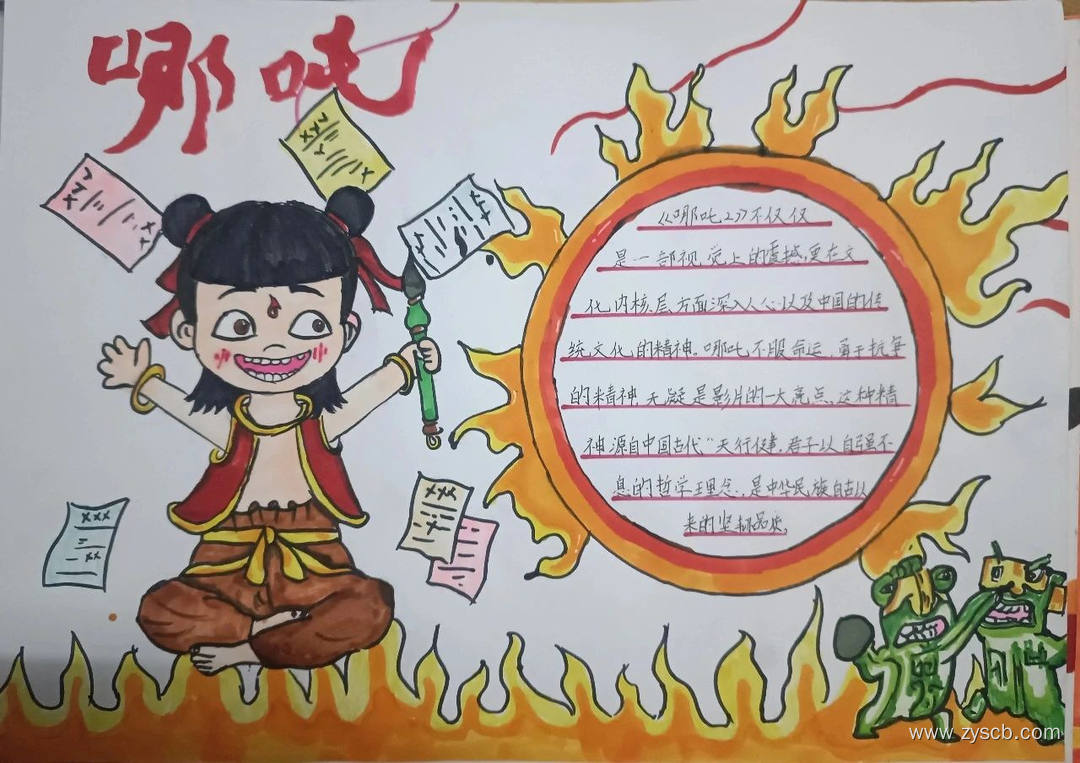 哪吒
《哪吒2》不仅仅
是一部视觉上的震撼,更在文
化内核层方面深入人心以及中国的传
统文化的精神。哪吒不服命运,勇于抗争
的精神,无疑是影片的一大亮点,这种精
神源自中国古代“天行健,君子以自强不
息的哲学理念,是中华民族自古以
来的坚韧品质。
xxx
xxx
xxx
www.zyscb.com